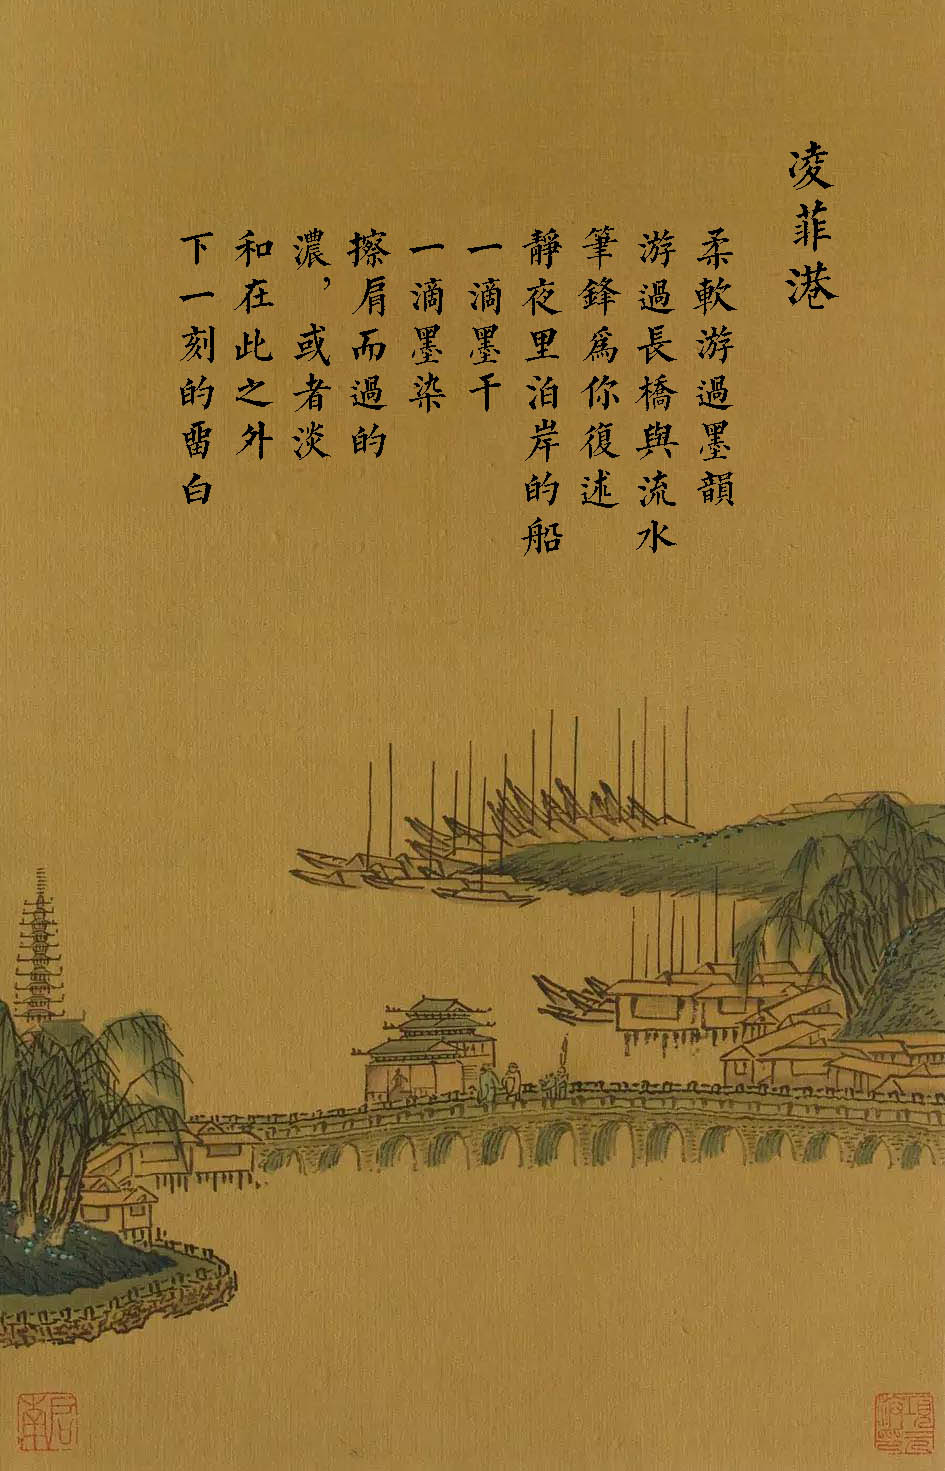 凌菲港
柔軟游過墨韻
游過長橋與流水
筆鋒爲你復述
靜夜里泊岸的船
一滴墨干
一滴墨染
擦肩而過的
濃，或者淡
和在此之外
下一刻的畱白